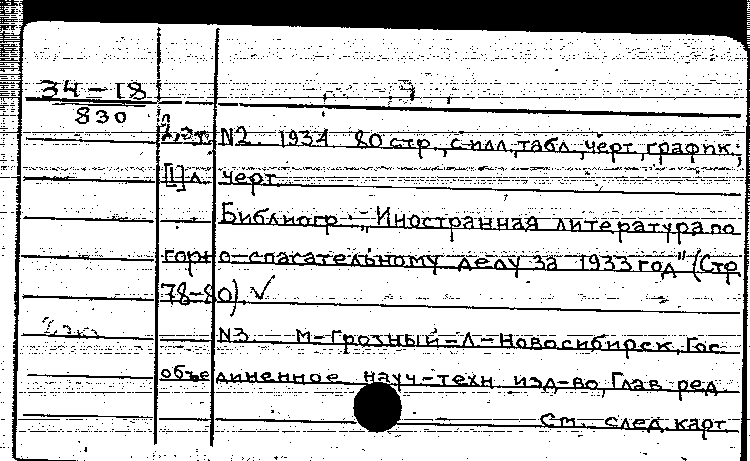 34-18
830
2, эт. N2. 1934. 80 стр., с илл., табл., черт., график.;
[1] л. черт.
Библиогр.: „Иностранная литература по
горно-спасательному делу за 1933 год" (Стр.
78-80). ✓
2 экз.
N3. М-Грозный-Л-Новосибирск, Гос.
объединенное науч-техн. изд-во, Глав. ред.
См. след. карт.